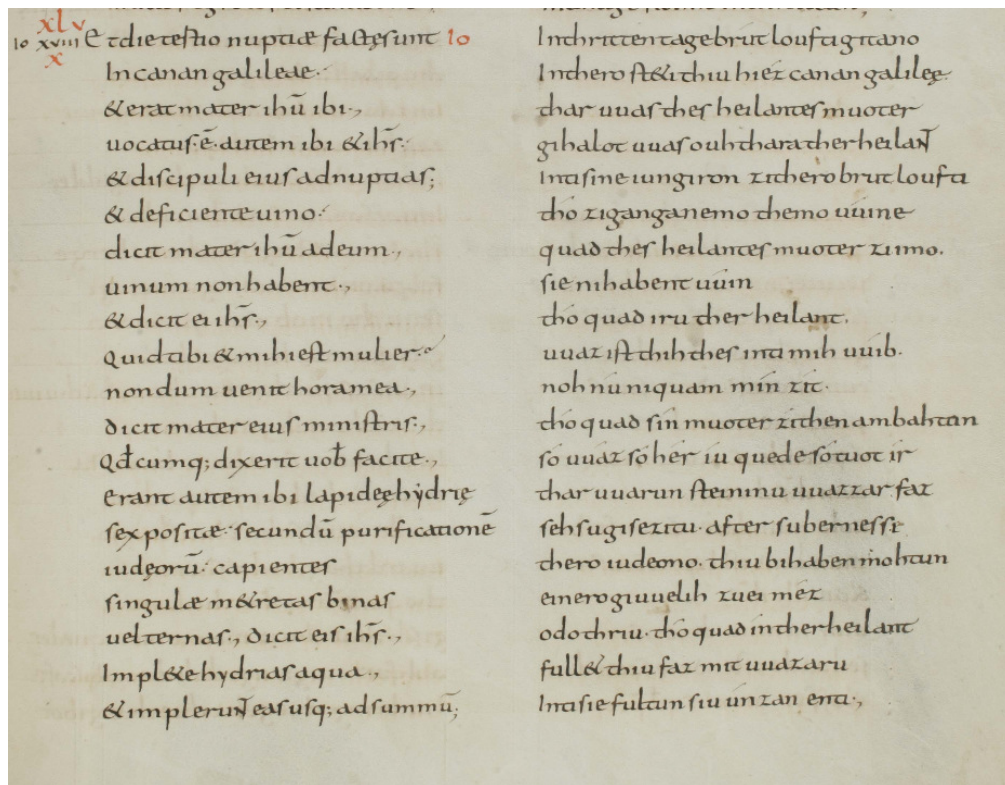 xlv
Io xviii Et die tertio nuptiæ factę sunt Io
x
In canan galileae.
& erat mater ihū ibi.,
uocatus. ē. autem ibi & ihs̄.
& discipuli eius ad nuptias;
& deficiente uino.
dicit mater ihū ad eum.,
uinum non habent.,
& dicit ei ihs̄.,
Quid tibi & mihi est mulier.
nondum uenit hora mea.,
dicit mater eius ministris.,
Qđcumq; dixerit uob̄ facite.,
erant autem ibi lapideę hydrię
sex positæ. secundū purificationē
iudęorū. capientes
singulæ m&retas binas
uel ternas., dicit eis ihs̄.,
Impl&e hydrias aqua.,
& impleruNT eas usq; ad summū;
In thritten tage brut loufti gitano
In thero st&i thiu hiez canan galileę.
thar uuas thes heilantes muoter
gihalot uuas ouh thara ther heilaNT
Inti sine iungiron zi thero brut loufti
tho ziganganemo themo uuine
quad thes heilantes muoter zi imo.
sie ni habent uuin
tho quad iru ther heilant.
uuaz ist thih thes inti mih uuib.
noh nu ni quam min zit.
tho quad sin muoter zi then ambahtun
so uuaz so her iu quede so tuot ir
thar uuarun steininu uuazzar faz
sehsu gisezitu. after subernesse
thero iudeono. thiu bihaben mohtun
einero giuuelih zuei mez
odo thriu. tho quad in ther heilant
full& thiu faz mit uuazaru
Inti sie fultun siu unzan enti.,